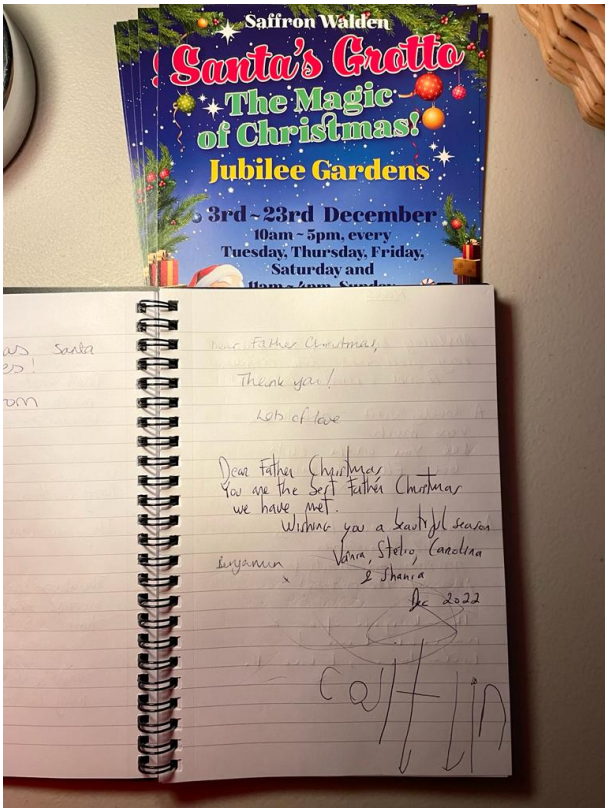 Saffron Walden
Santa's Grotto
The Magic
of Christmas!
Jubilee Gardens
3rd ~ 23rd December
10am ~ 5pm, every
Tuesday, Thursday, Friday,
Saturday and
11am ~ 4pm, Sunday
as Santa
es!
om
Dear Father Christmas,
Thank you!
Lots of love
Dear Father Christmas
You are the best Father Christmas
we have met.
Wishing you a beautiful season
Vânia, Stelio, Carolina
& Shania
Benjamin
x
Dec 2022
Caitlin